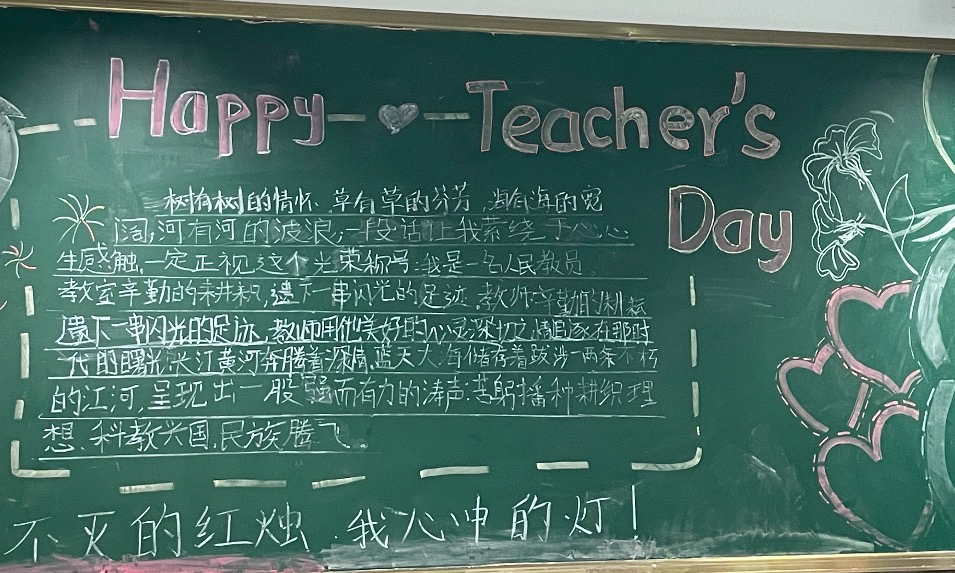 Happy Teacher's
Day
树有树的情怀 草有草的芬芳 海有海的宽
阔,河有河的波浪,一段话让我萦绕于心心
生感触.一定正视这个光荣称号:我是一名人民教员
教室辛勤的耕耘,遗下一串闪光的足迹.教师辛勤的耕耘
遗下一串闪光的足迹.教师用他美好的心灵深切之情追逐着那时
代的曙光.长江黄河奔腾着深情.蓝天大 储存着跋涉 两条不朽
的江河,呈现出一股强而有力的涛声.苦躬播种耕织理
想.科教兴国.民族腾飞。
不灭的红烛.我心中的灯!